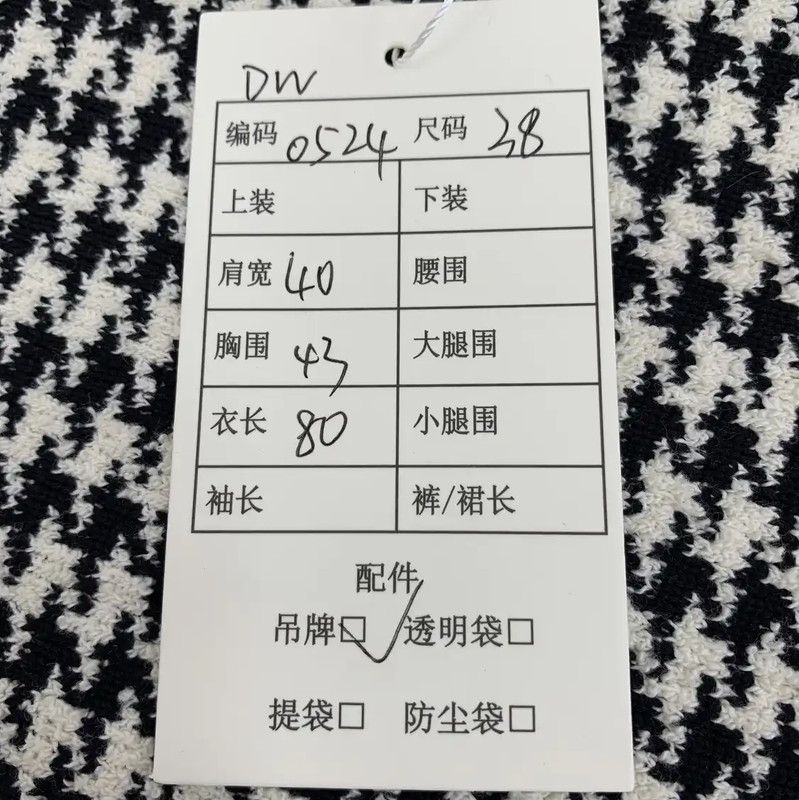 DW
编码 0524 尺码 38
上装 下装
肩宽 40 腰围
胸围 43 大腿围
衣长 80 小腿围
袖长 裤/裙长
配件
吊牌☑ 透明袋□
提袋□ 防尘袋□